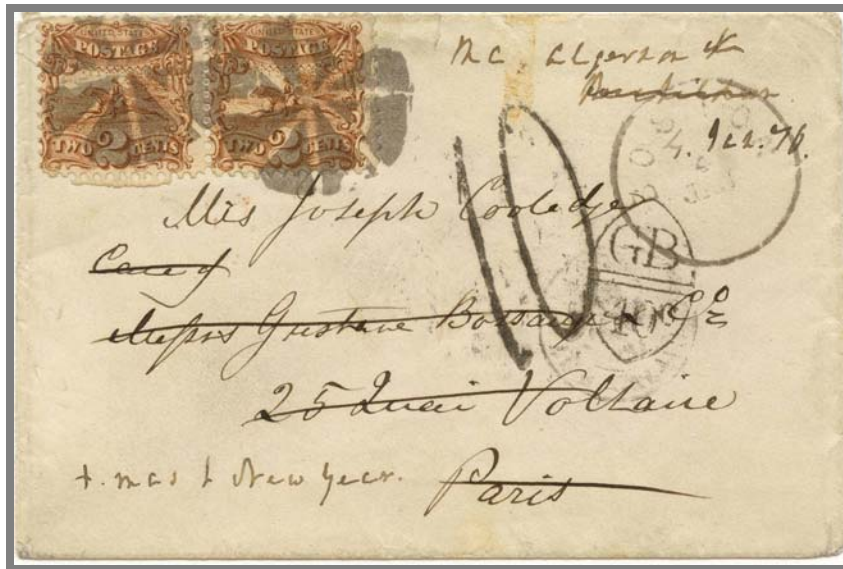 UNITED STATES
POSTAGE
TWO 2 CENTS
UNITED STATES
POSTAGE
TWO 2 CENTS
4. Jan. 70.
10
Mrs Joseph Coolidge
Care of
GB
40c
Messrs Gustave Bossange & Co
25 Quai Voltaire
X. mas & New Year.
Paris